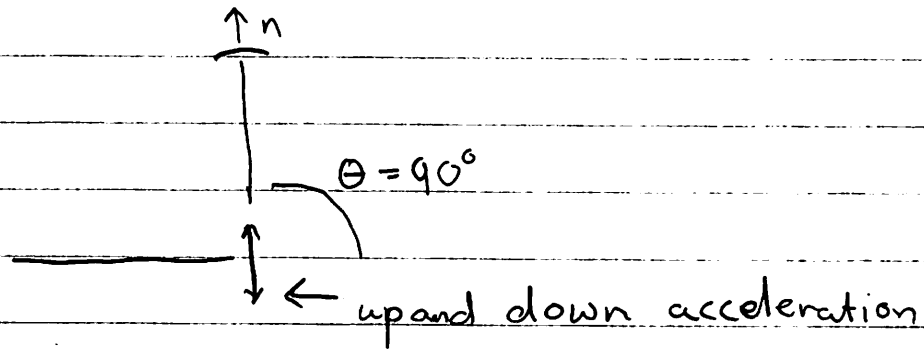 n
θ = 90°
up and down acceleration